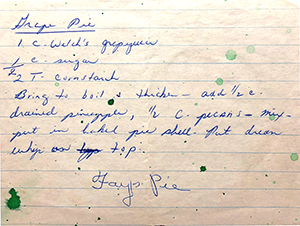 Grape Pie
1 C. Welch's grapejuice
1/2 c. sugar
2 T. cornstarch
Bring to boil & thicken - add 1/2 c.
drained pineapple, 1/2 C. pecans - mix -
put in baked pie shell. Put dream
whip on top.
Fay's Pie